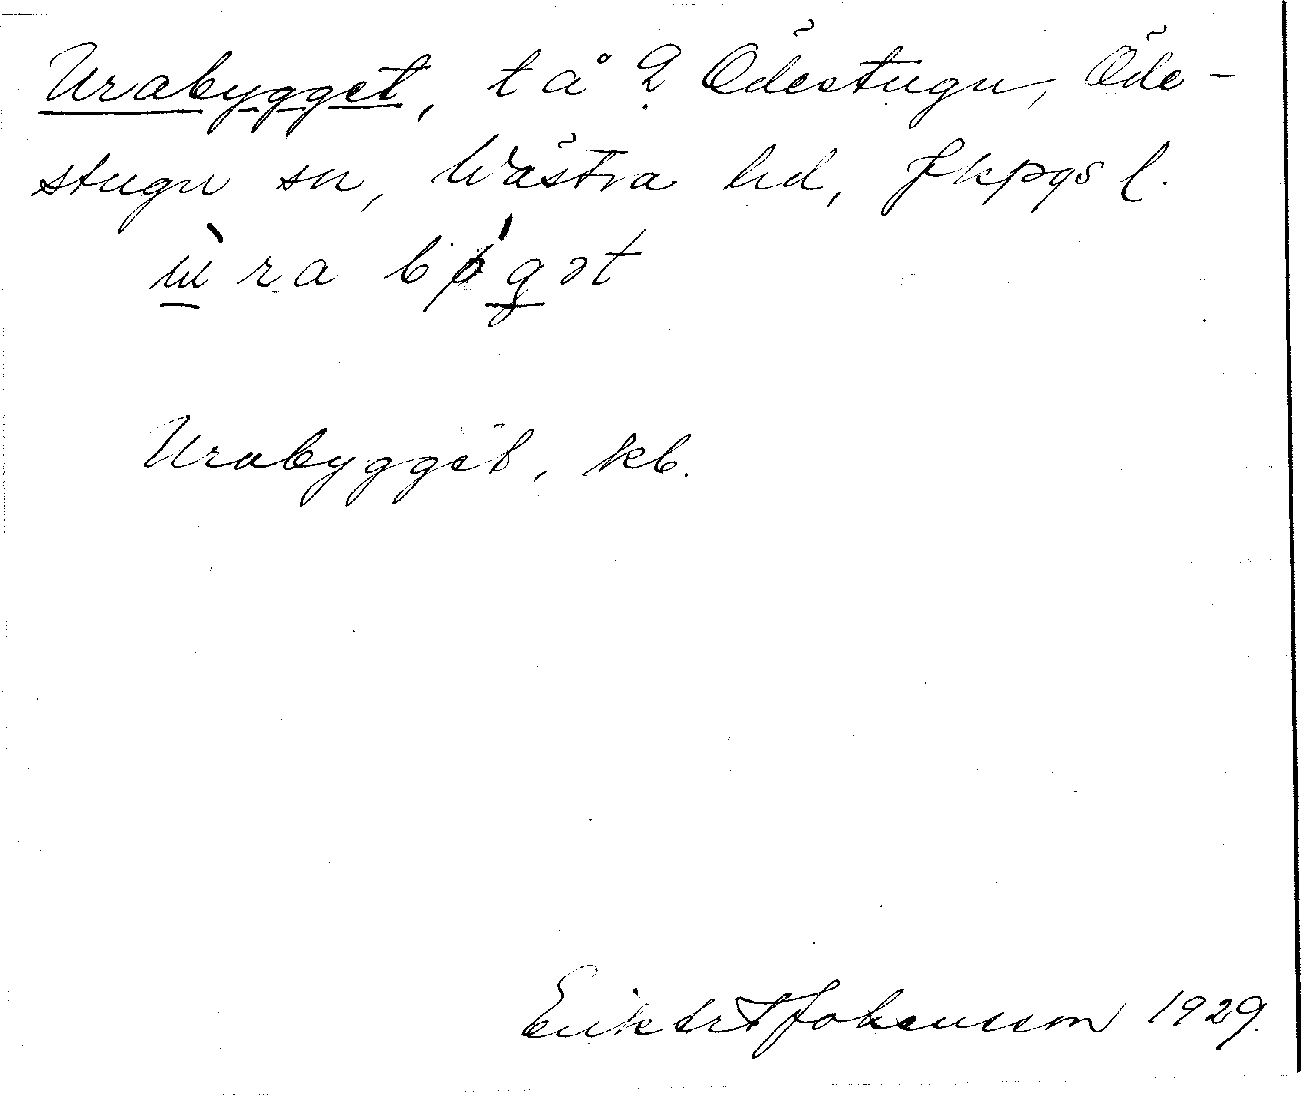 Urabygget, t å ? Ödestugu, Öde-
stugu sn, Västra hd, Jkpgs l.
ɯ̀ra bǿgət
Urabygget, kb.
Johansson 1929.